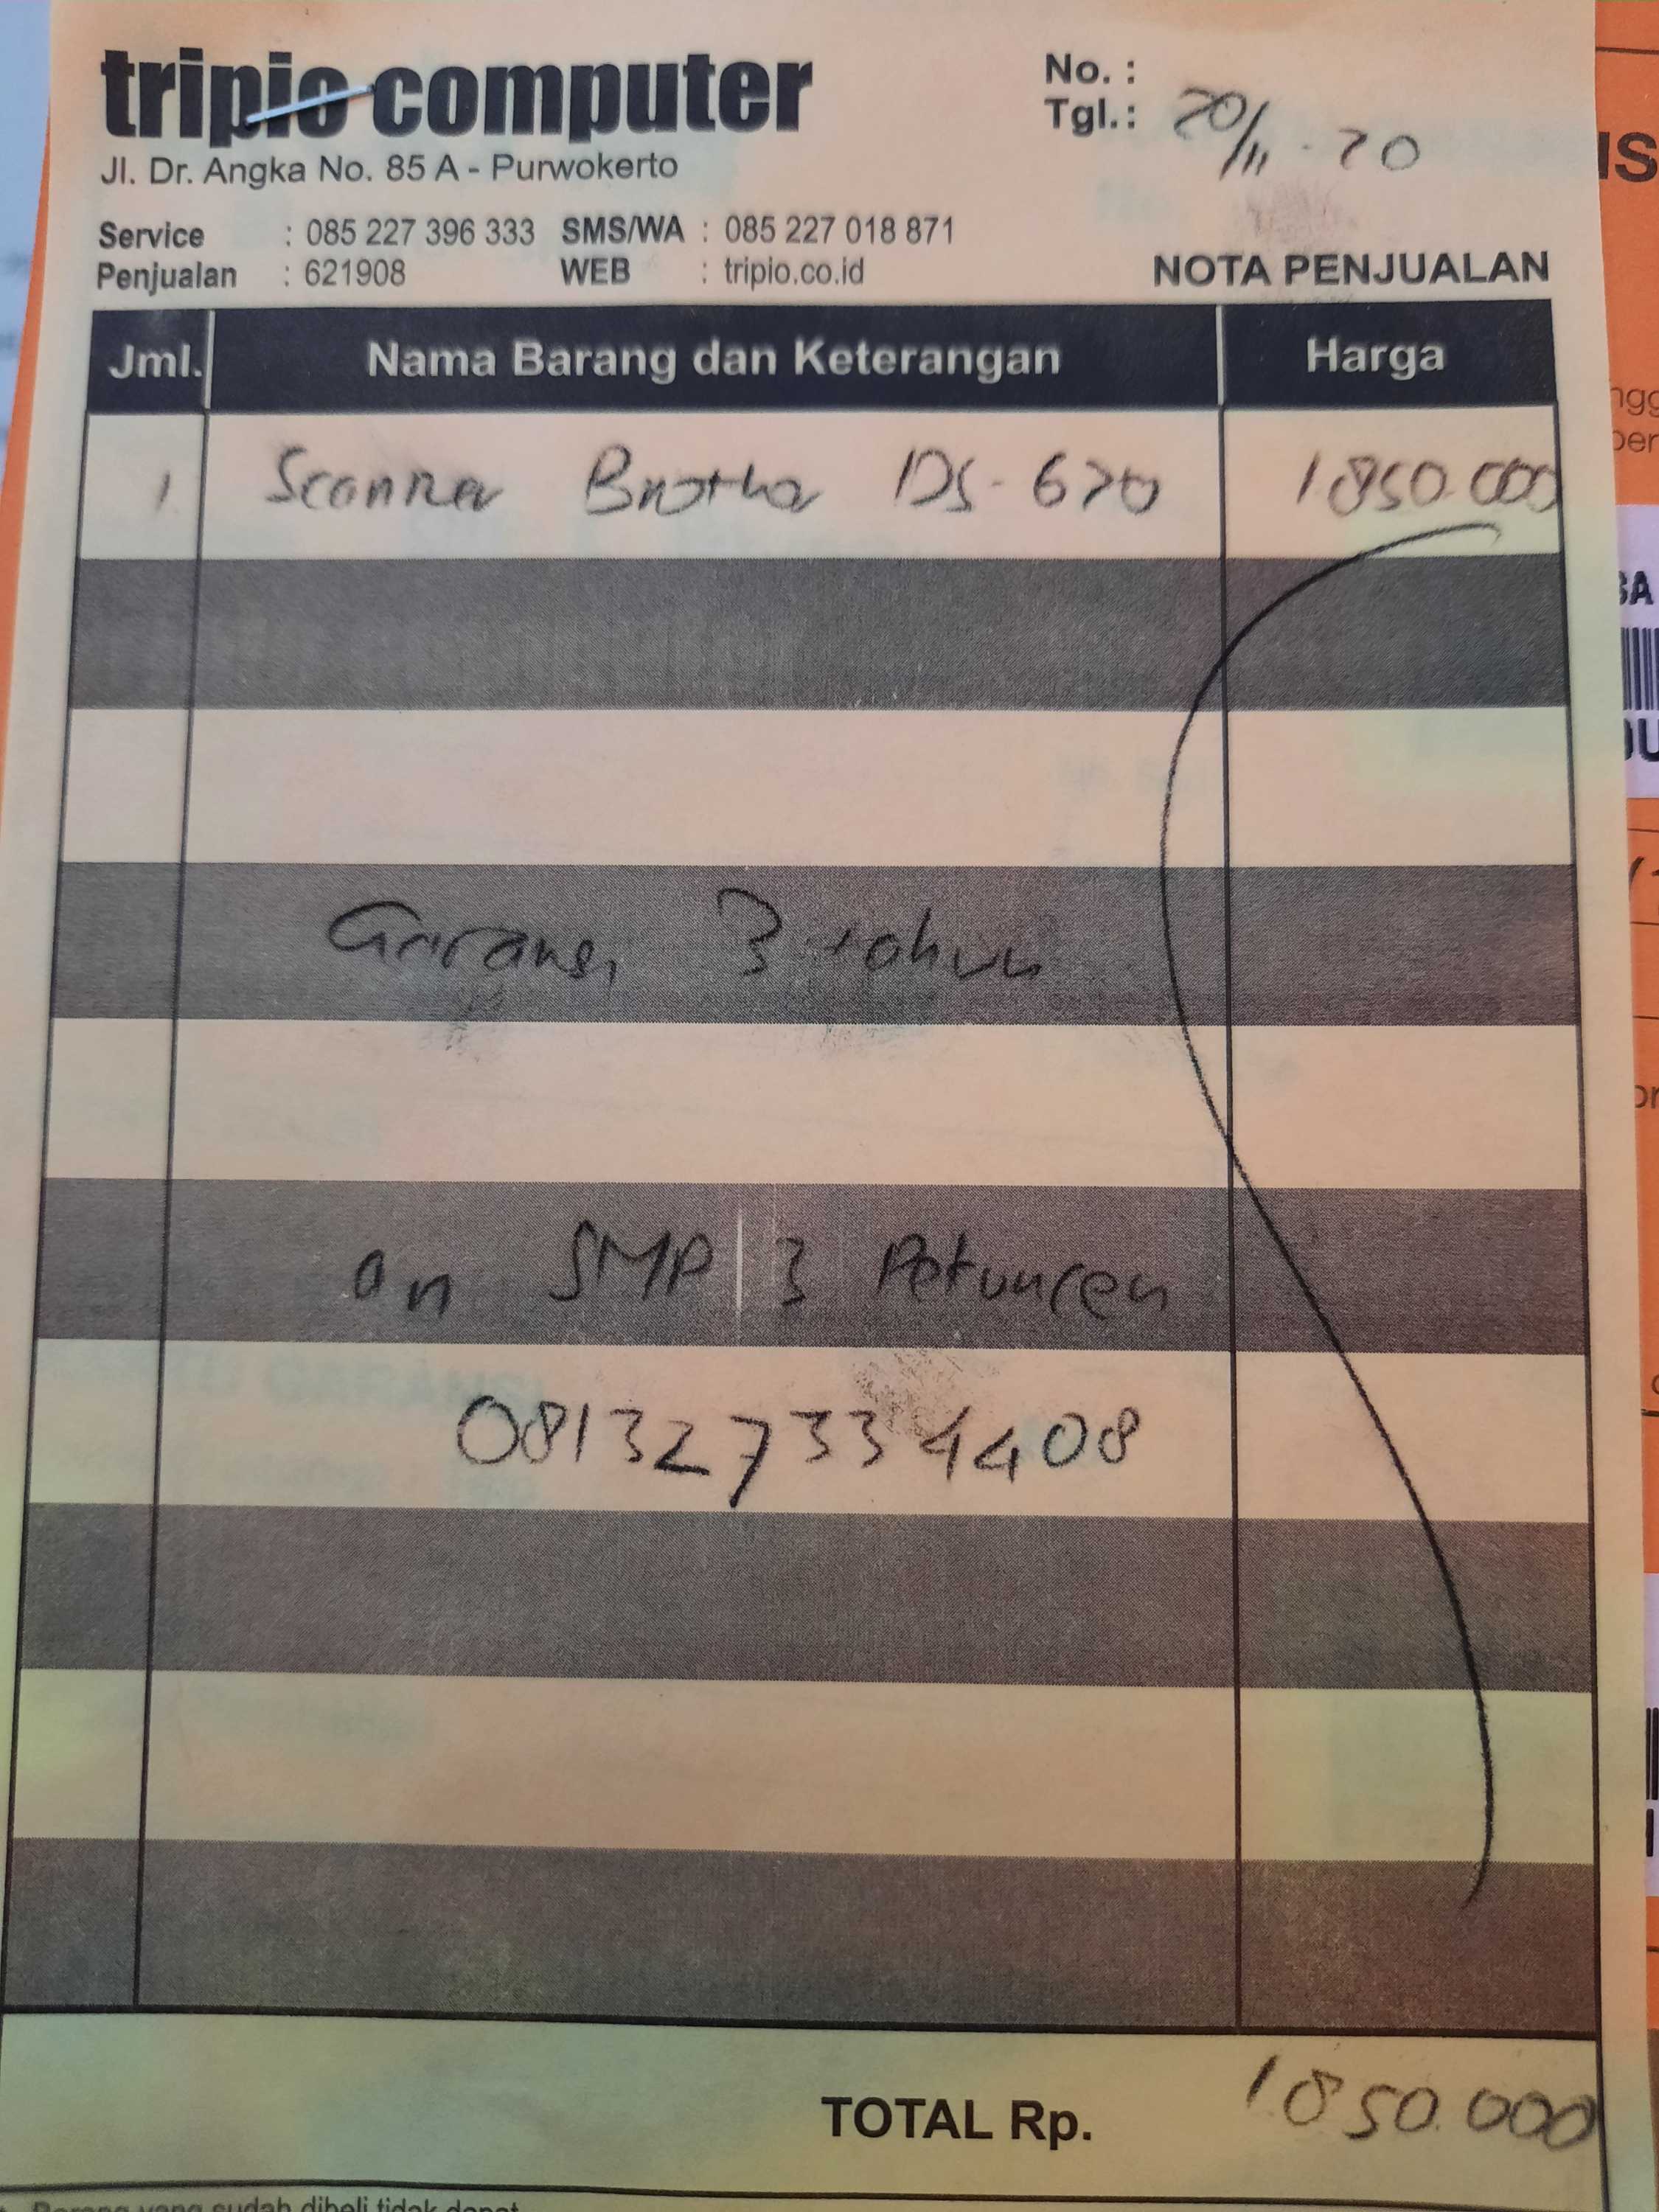 tripio computer
Jl. Dr. Angka No. 85 A - Purwokerto
No. :
Tgl.: 20/11 - 20
Service : 085 227 396 333 SMS/WA : 085 227 018 871
Penjualan : 621908 WEB : tripio.co.id
NOTA PENJUALAN
Jml. Nama Barang dan Keterangan Harga
1 Scanner Brother DS-620 1850.000
Garansi 3 tahun
an SMP 3 Pekuncen
081327334408
TOTAL Rp. 1.850.000
Barang yang sudah dibeli tidak dapat